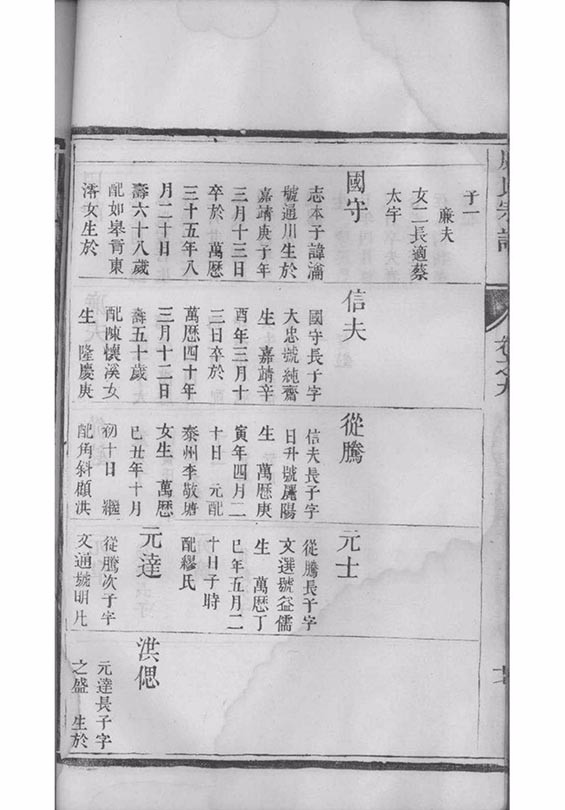 氏宗譜
卷之九
子一
廉夫
女二長適蔡
太宇
國守
志本子諱瀹
號通川生於
嘉靖庚子年
三月十三日
卒於萬厯
三十五年八
月二十日
壽六十八歲
配如皋賁東
澪女生於
信夫
國守長子字
大忠號純齋
生嘉靖辛
酉年三月十
三日卒於
萬厯四十年
三月十二日
壽五十歲
配陳懷溪女
生隆慶庚
從騰
信夫長子字
日升號陽
生萬厯庚
寅年四月二
十日元配
泰州李敬塘
女生萬厯
己丑年十月
初十日繼
配角斜顧洪
元士
從騰長子字
文選號益儒
生萬厯丁
巳年五月二
十日子時
配繆氏
元達
從騰次子字
文通號明凡
洪偲
元達長子字
之盛生於